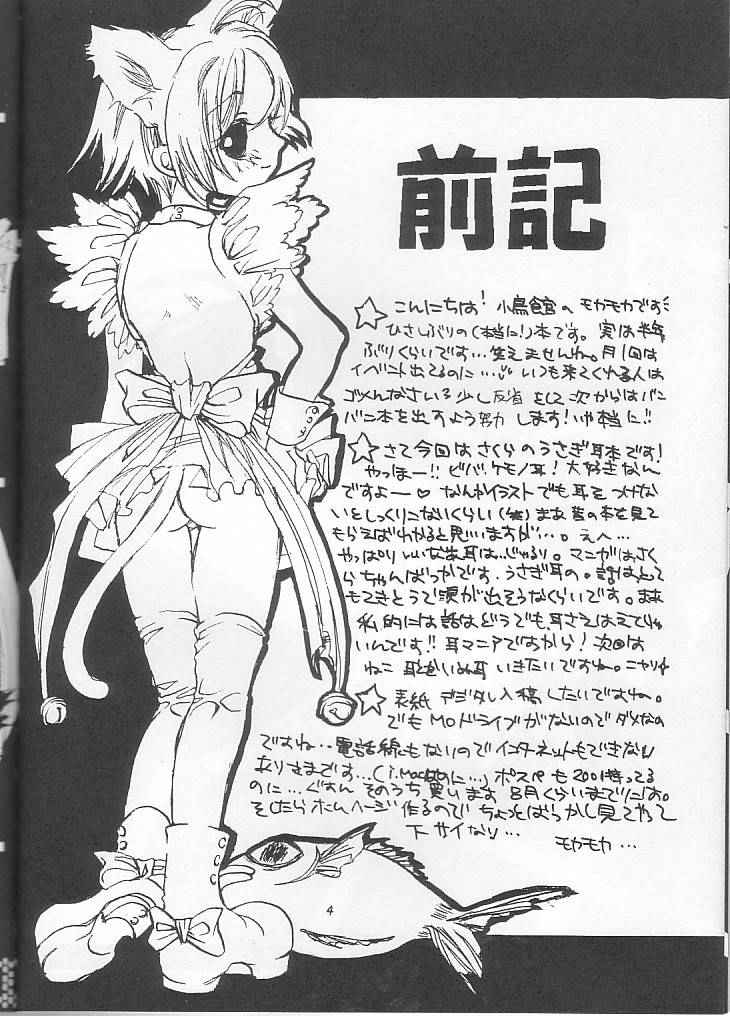 前記
☆こんにちは!小鳥館のモカモカです
ひさしぶりの(本当に!)本です。実は半年
ぶりくらいです…笑えませんね。月1回は
イベント出てるのに…いつも来てくれる人は
ゴメんなさい 少し反省をして次からはバン
バン本を出すよう努力します!いや本当に!!
☆さて今回はさくらのうさぎ耳本です!
やっほー!!ビバ、ケモノ耳!大好きなん
ですよー♡なんかイラストでも耳をつけな
いとしっくりこないくらい(笑)まあ皆の本を見て
もらえばわかると思いますが…。えへ…
やっぱりいいなあ耳は…じゅるり。マンガはさく
らちゃんばっかです.うさぎ耳の。話はとって
もてきとうで涙が出そうなくらいです。まあ
私的には話はどうでも耳さえはえてりゃ
いんです!!耳マニアですから!次回は
ねこ耳とかいぬ耳いきたいですねー。ニヤリ
☆表紙デジタル入稿したいですねー。
でもMOドライブがないのでダメなの
ですね…電話線もないのでインターネットもできない
ありさまです…(i.Macなのに…)ポスペも2001持ってる
のに…ぐすん そのうち買います 8月くらいまでには。
そしたらホームページ作るのでちょっとばっかし見てやって
下サイなり…
モカモカ…
4